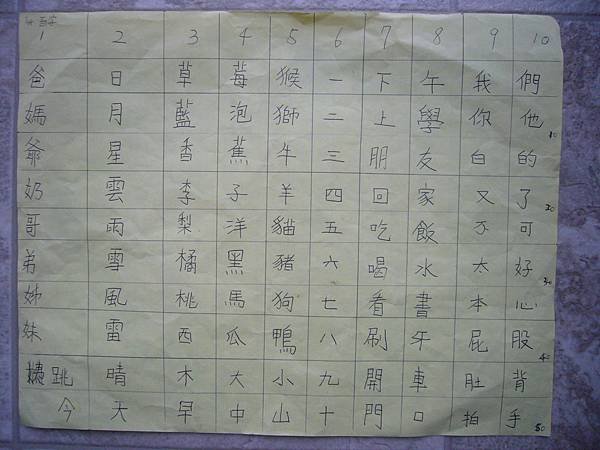 1 2 3 4 5 6 7 8 9 10
爸 日 草 莓 猴 一 下 午 我 們
媽 月 藍 泡 獅 二 上 學 你 他 10
爺 星 香 蕉 牛 三 朋 友 白 的
奶 雲 李 子 羊 四 回 家 又 了 20
哥 雨 梨 洋 貓 五 吃 飯 不 可
弟 雪 橘 黑 豬 六 喝 水 太 好 30
姊 風 桃 馬 狗 七 看 書 本 心
妹 雷 西 瓜 鴨 八 刷 牙 屁 股 40
跳 晴 木 大 小 九 開 車 肚 背
今 天 早 中 山 十 門 口 拍 手 50